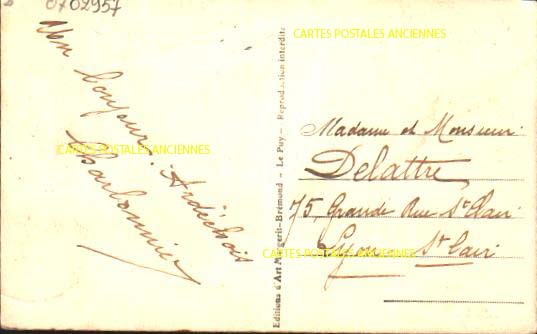 0702957
Un bonjour Ardéchois
Charbonnier
CARTES POSTALES ANCIENNES
CARTES POSTALES ANCIENNES
CARTES POSTALES ANCIENNES
Editions d'Art Margerit-Brémond - Le Puy - Reproduction interdite
Madame et Monsieur
Delattre
75, Grande Rue St Clair
Lyon St Clair